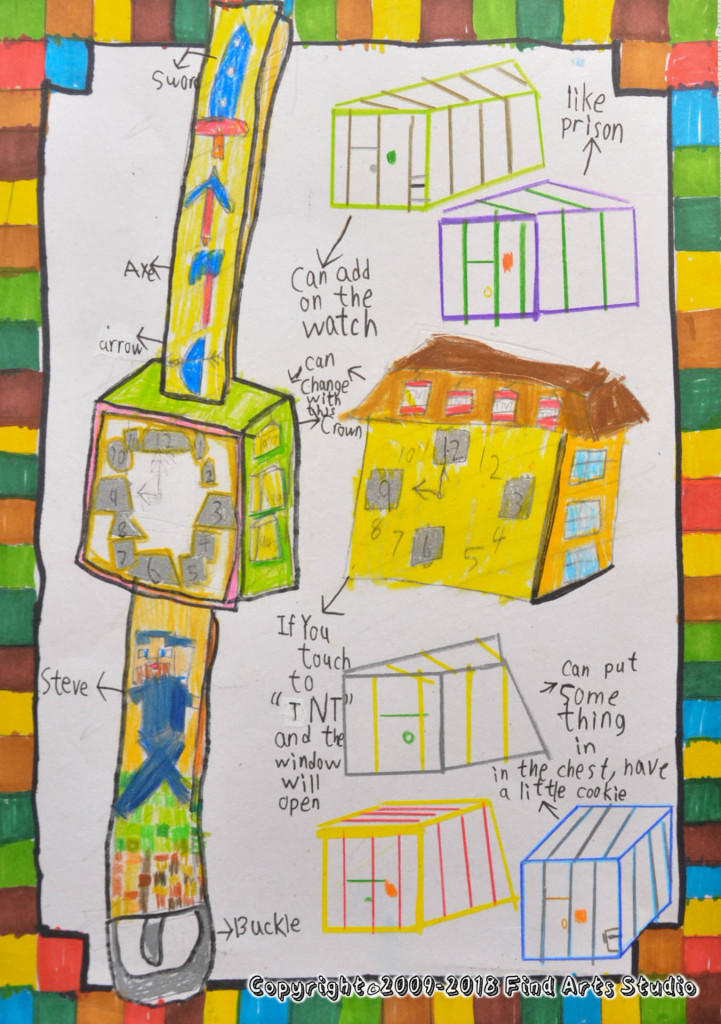 Sword
like
prison
Axe
Can add
on the
watch
arrow
can
Change
with
this
Crown
12
1
2
3
4
5
6
7
8
9
10
11
10
11
12
1
2
3
4
5
6
7
8
9
If You
touch
to
"TNT"
and the
window
will
open
Steve
can put
Some
thing
in
in the chest, have
a little cookie
Buckle
Copyright 2009-2018 Find Arts Studio